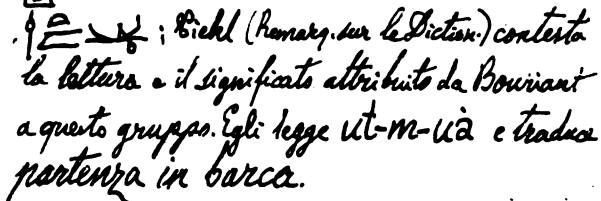 ; Piehl (Remarq. sur le Diction.) contesta
la lettura e il significato attribuito da Bouriant
a questo gruppo. Egli legge ut-m-uà e traduce
partenza in barca.